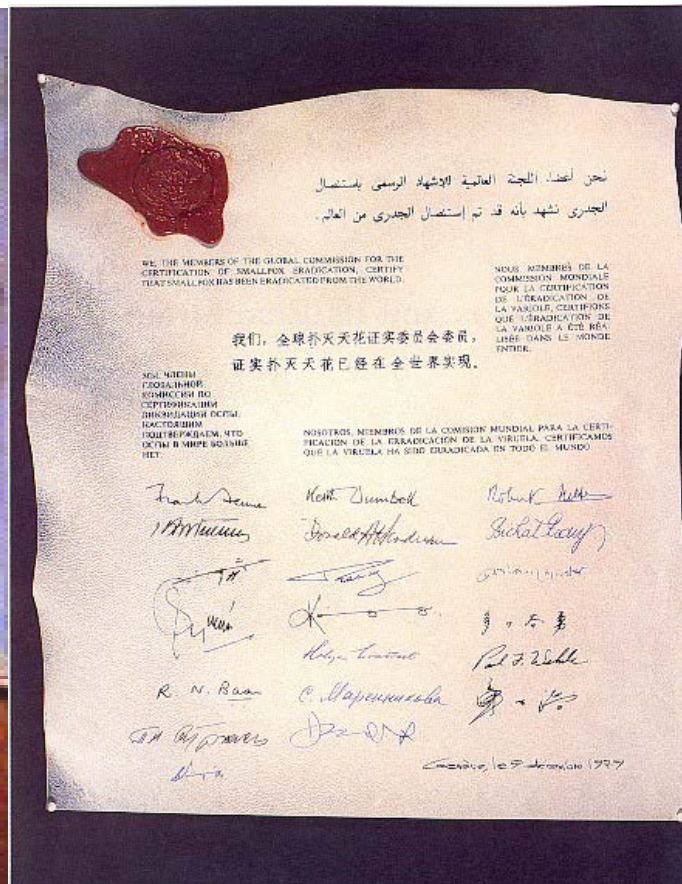 نحن أعضاء اللجنة العالمية للإشهاد الرسمى باستئصال
الجدرى نشهد بأنه قد تم إستئصال الجدرى من العالم.
WE, THE MEMBERS OF THE GLOBAL COMMISSION FOR THE
CERTIFICATION OF SMALLPOX ERADICATION, CERTIFY
THAT SMALLPOX HAS BEEN ERADICATED FROM THE WORLD.
NOUS, MEMBRES DE LA
COMMISSION MONDIALE
POUR LA CERTIFICATION
DE L'ÉRADICATION DE
LA VARIOLE, CERTIFIONS
QUE L'ÉRADICATION DE
LA VARIOLE A ÉTÉ RÉA-
LISÉE DANS LE MONDE
ENTIER.
我们，全球扑灭天花证实委员会委员，
证实扑灭天花已经在全世界实现。
МЫ, ЧЛЕНЫ
ГЛОБАЛЬНОЙ
КОМИССИИ ПО
СЕРТИФИКАЦИИ
ЛИКВИДАЦИИ ОСПЫ,
НАСТОЯЩИМ
ПОДТВЕРЖДАЕМ, ЧТО
ОСПЫ В МИРЕ БОЛЬШЕ
НЕТ.
NOSOTROS, MIEMBROS DE LA COMISION MUNDIAL PARA LA CERTI-
FICACION DE LA ERRADICACION DE LA VIRUELA, CERTIFICAMOS
QUE LA VIRUELA HA SIDO ERRADICADA EN TODO EL MUNDO.
Keith Dumbell
Donald A Henderson
Paul F. Wehrle
R. N. Basu
С. Маренникова
Genève, le 9 décembre 1979